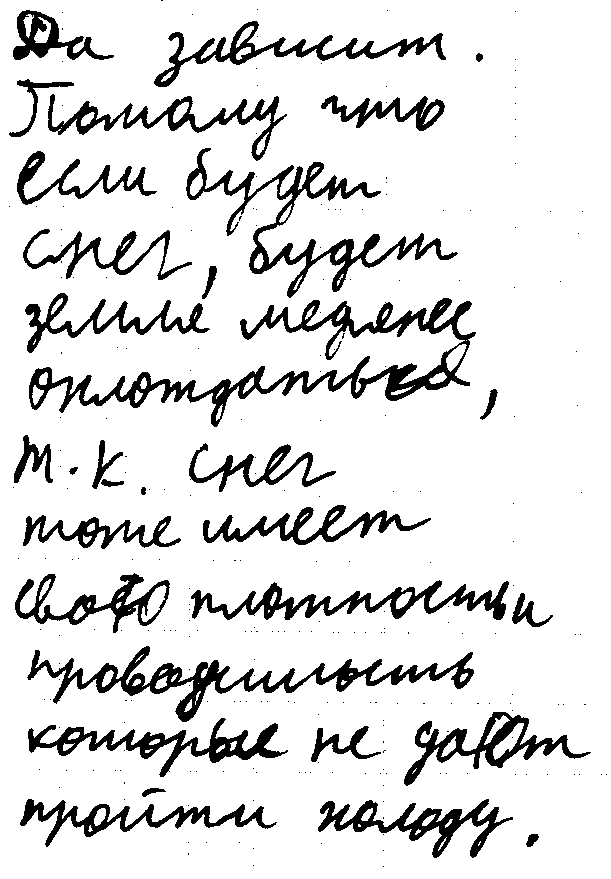 Да зависит.
Потому что
если будет
снег, будет
земля медленее
охлождаться,
т.к. снег
тоже имеет
свою плотность и
проводимость
которые не дают
пройти холоду.